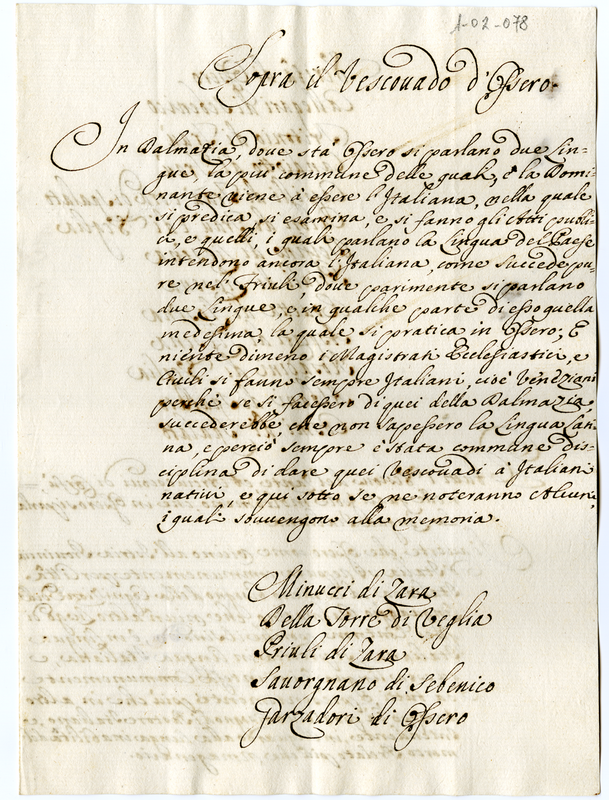 1-02-078
Sopra il Vescovado d'Ossero.
In Dalmazia, dove sta Ossero si parlano due Lin-
gue, la più commune delle quali, è la Domi-
nante viene à essere l'Italiana, nella quale
si predica, si esamina, e si fanno gli Atti publi-
ci, e quelli, i quali parlano la Lingua del Paese
intendono ancora l'Italiana, come succede pu-
re nel Friuli, dove parimente si parlano
due Lingue, e in qualche parte di esso quella
medesima, la quale si pratica in Ossero; E
niente dimeno i Magistrati Ecclesiastici, e
Civili si fanno sempre Italiani, cioè Veneziani
perche se si facessero di quei della Dalmazia
succederebbe, che non sapessero la Lingua Lati-
na, e perciò sempre è stata commune dis-
ciplina di dare quei Vescovadi à Italiani
nativi, e qui sotto se ne noteranno Alcuni,
i quali sovvengono alla memoria.
Minucci di Zara
Della Torre di Veglia
Priuli di Zara
Savorgnano di Sebenico
Garzadori di Ossero